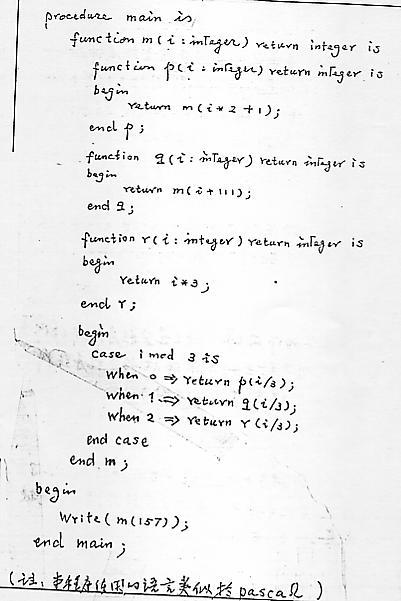 procedure main is
function m(i : integer) return integer is
function p(i : integer) return integer is
begin
return m(i*2+1);
end p;
function q(i : integer) return integer is
begin
return m(i+111);
end q;
function r(i : integer) return integer is
begin
return i*3;
end r;
begin
case i mod 3 is
when 0 => return p(i/3);
when 1 => return q(i/3);
when 2 => return r(i/3);
end case
end m;
begin
Write(m(157));
end main;
(注：本程序使用的语言类似於pascal)